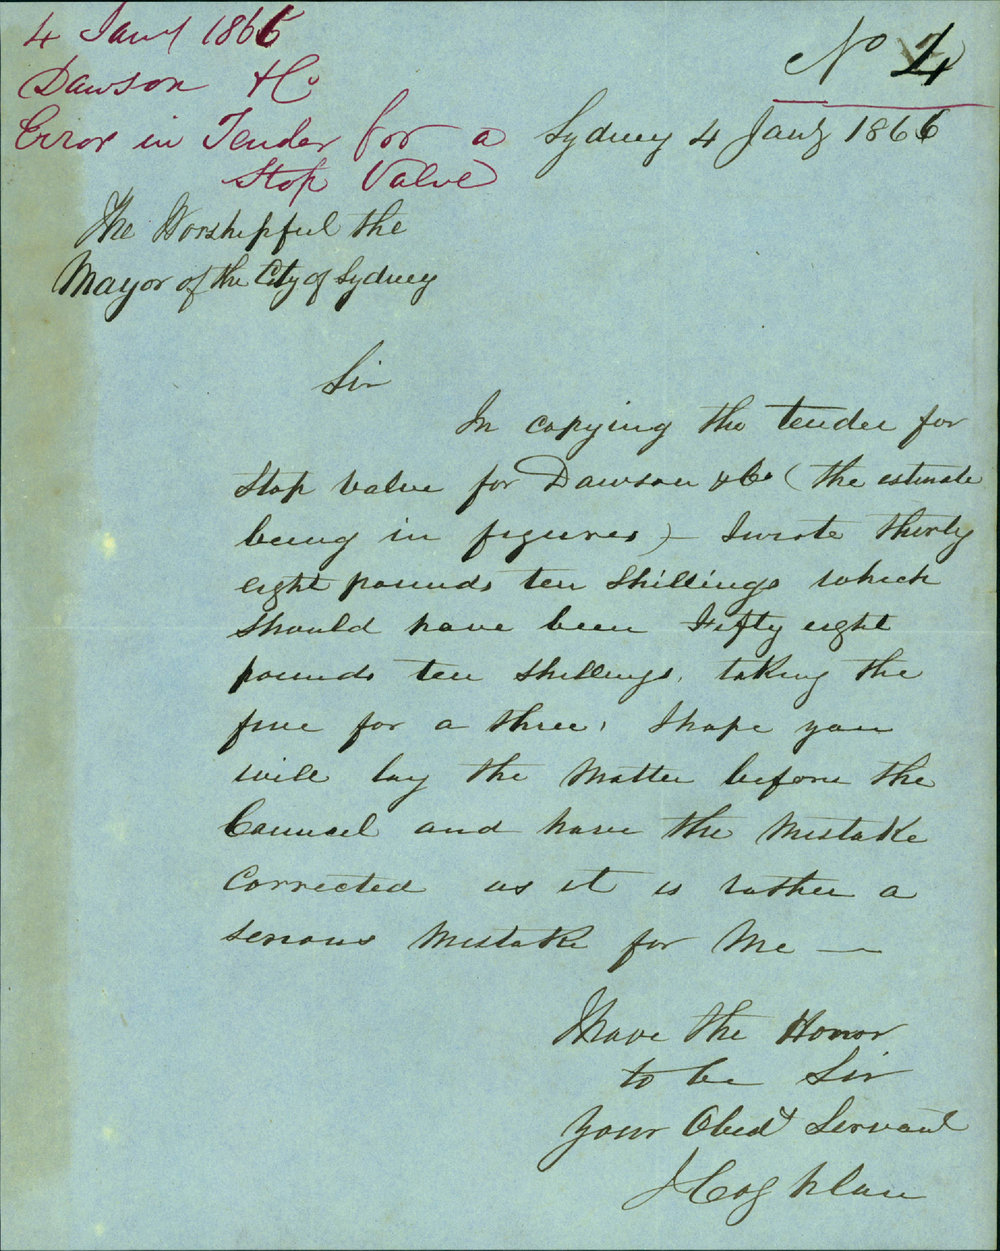 4 Jany 1866
Dawson & Co
Error in Tender for a
Stop Valve
No 4
Sydney 4 Jany 1866
The Worshipful the
Mayor of the City of Sydney
Sir
In copying the tender for
Stop valve for Dawson & Co (the estimate
being in figures) – I wrote thirty
eight pounds ten Shillings which
should have been Fifty eight
pounds ten shillings, taking the
five for a three, I hope you
will lay the Matter before the
Council and have the Mistake
Corrected as it is rather a
serious Mistake for Me —
I have the Honor
to be Sir
Your Obedt Servant
J Coghlan